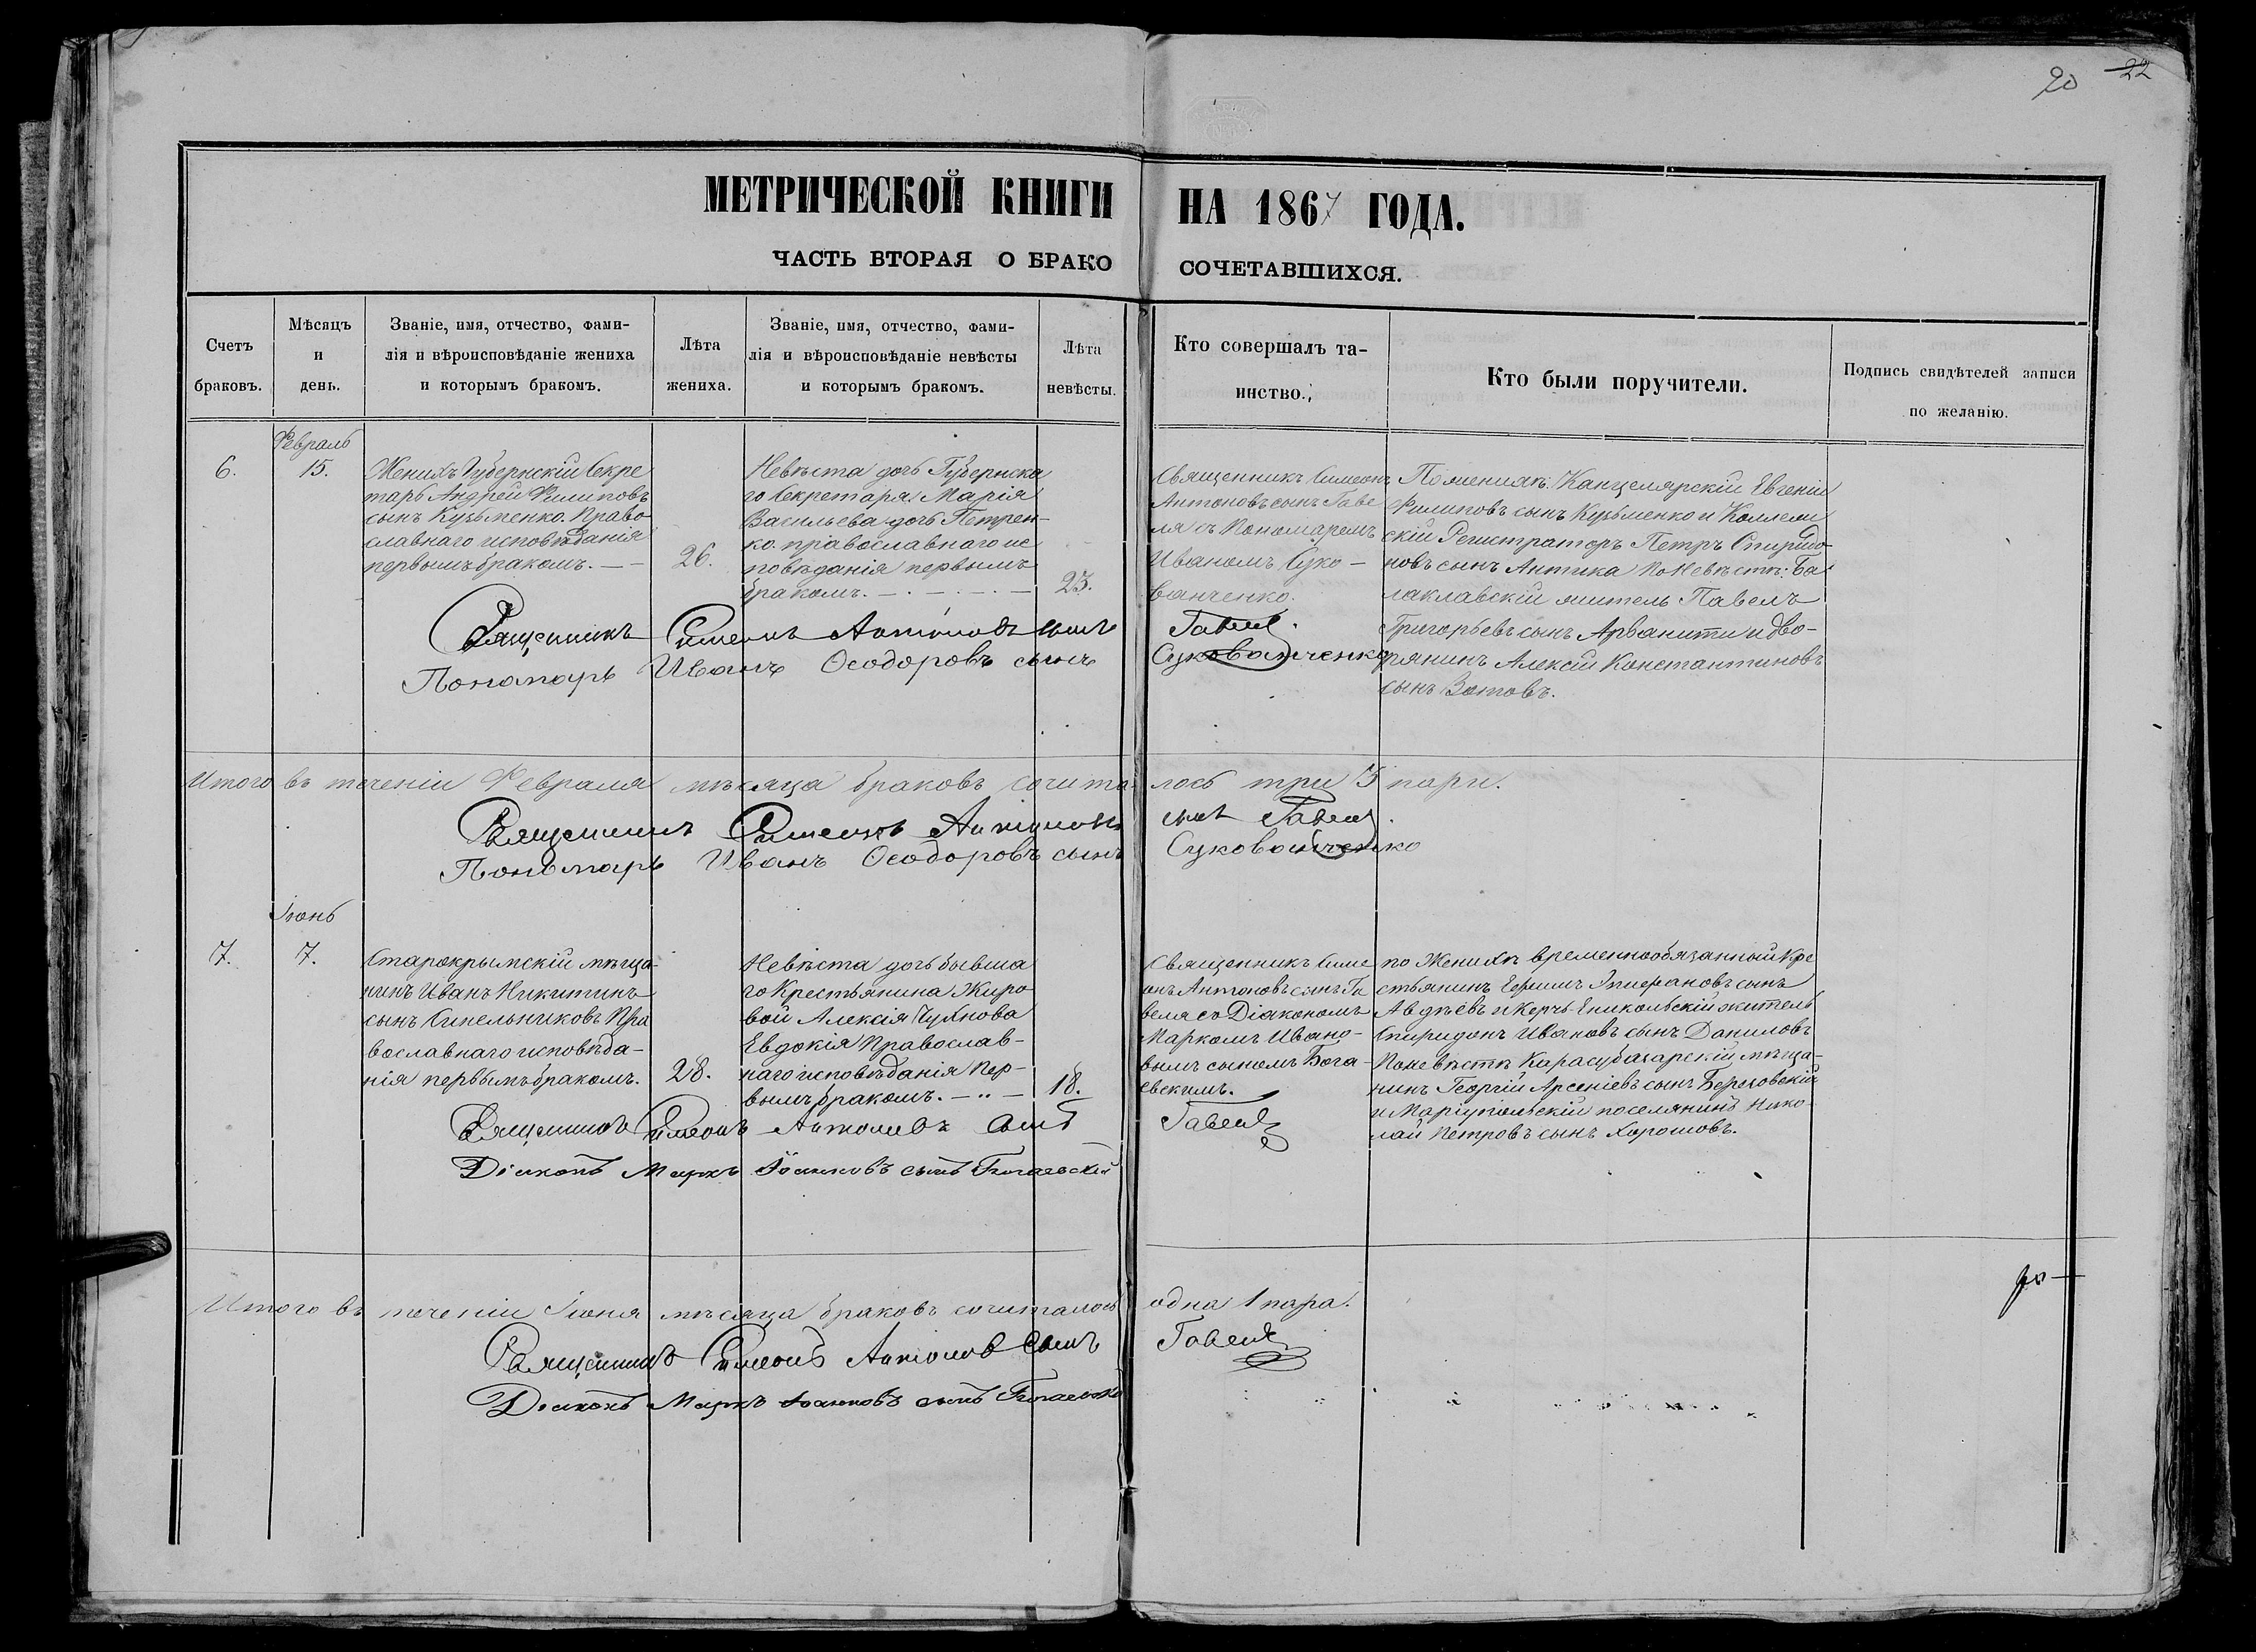 20 22
МЕТРИЧЕСКОЙ КНИГИ НА 1867 ГОДА.
ЧАСТЬ ВТОРАЯ О БРАКО СОЧЕТАВШИХСЯ.
Счетъ
браковъ.
Мѣсяцъ
и
день.
Званіе, имя, отчество, фами-
лія и вѣроисповѣданіе жениха
и которымъ бракомъ.
Лѣта
жениха.
Званіе, имя, отчество, фами-
лія и вѣроисповѣданіе невѣсты
и которымъ бракомъ.
Лѣта
невѣсты.
Кто совершалъ та-
инство.
Кто были поручители.
Подпись свидѣтелей записи
по желанію.
Февраль
6.
15.
Женихъ Губернскій Секре
тарь Андрей Филиповъ
сынъ Кузьменко. Право-
славнаго исповѣданія
первымъ бракомъ. — —
26.
Невѣста дочь Губернска
го Секретаря Марія
Васильева дочь Петрен-
ко православнаго ис
повѣданія первымъ
бракомъ. —
23.
Священникъ Симеонъ
Антоновъ сынъ Гаве
ля съ Пономаремъ
Иваномъ Суко-
ванченко.
По женихѣ: Канцелярскій Евгеній
Филиповъ сынъ Кузьменко и Коллеж
скій Регистраторъ Петръ Спиридо-
новъ сынъ Антика По Невѣстѣ: Ба
лаклавскій житель Павелъ
Григорьевъ сынъ Арванити и дво-
рянинъ Алексій Константиновъ
сынъ Зотовъ.
Священникъ Симеонъ Антоновъ сынъ Гавеля.
Пономарь Иванъ Ѳеодоровъ сынъ Сукованченко
Итого въ теченіи Февраля мѣсяца браковъ сочита-лось три 3 пари.
Священникъ Симеонъ Антоновъ сынъ Гавеля.
Пономарь Иванъ Ѳеодоровъ сынъ Сукованченко
Іюнь
7.
7.
Старокрымскій мѣща-
нинъ Иванъ Никитинъ
сынъ Синельниковъ Пра
вославнаго исповѣда-
нія первымъ бракомъ.
28.
Невѣста дочь бывша
го Крестьянина Жиро
вой Алексія Чухнова
Евдокія Православ-
наго исповѣданія Пер-
вымъ бракомъ. — „ —
18.
Священникъ Симе
онъ Антоновъ сынъ Га
веля съ Діакономъ
Маркомъ Ивано-
вымъ сыномъ Бога-
евскимъ.
по Женихѣ временнообязанной Кре
стьянинъ Ефимъ Эпифановъ сынъ
Авдѣевъ и Керчь-Еникольскій житель
Спиридонъ Ивановъ сынъ Даниловъ
По невѣстѣ Карасубазарскій мѣща-
нинъ Георгій Арсеніевъ сынъ Березовскій
и Маріупольскій поселянинъ Нико-
лай Петровъ сынъ Хорошовъ.
Священникъ Симеонъ Антоновъ сынъ Гавеля
Діаконъ Маркъ Іоанновъ сынъ Богаевскій
Итого въ теченіи Іюня мѣсяца браковъ сочиталось одна 1 пара.
Священникъ Симеонъ Антоновъ сынъ Гавеля
Діаконъ Маркъ Іоанновъ сынъ Богаевскій